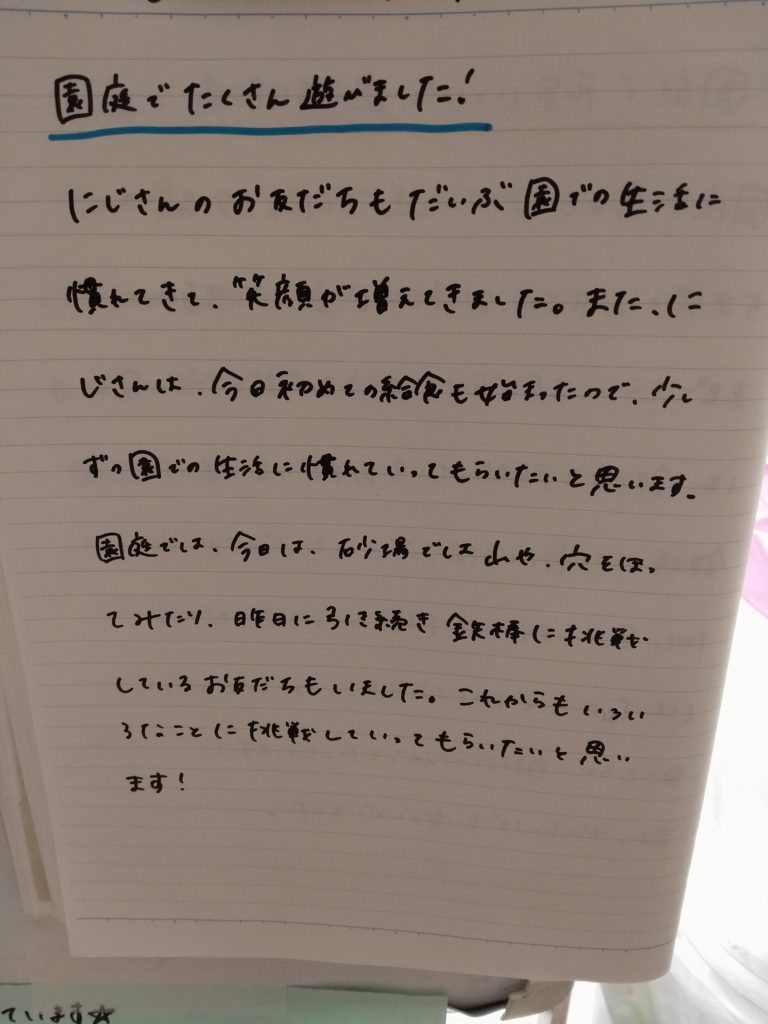 園庭でたくさん遊びました!
にじさんのお友だちもだいぶ園での生活に
慣れてきて、笑顔が増えてきました。また、に
じさんは、今日初めての給食も始まったので、少し
ずつ園での生活に慣れていってもらいたいと思います。
園庭では、今日は、砂場では山や、穴をほっ
てみたり、昨日に引き続き鉄棒に挑戦を
しているお友だちもいました。これからもいろい
ろなことに挑戦をしていってもらいたいと思い
ます!
ています☆